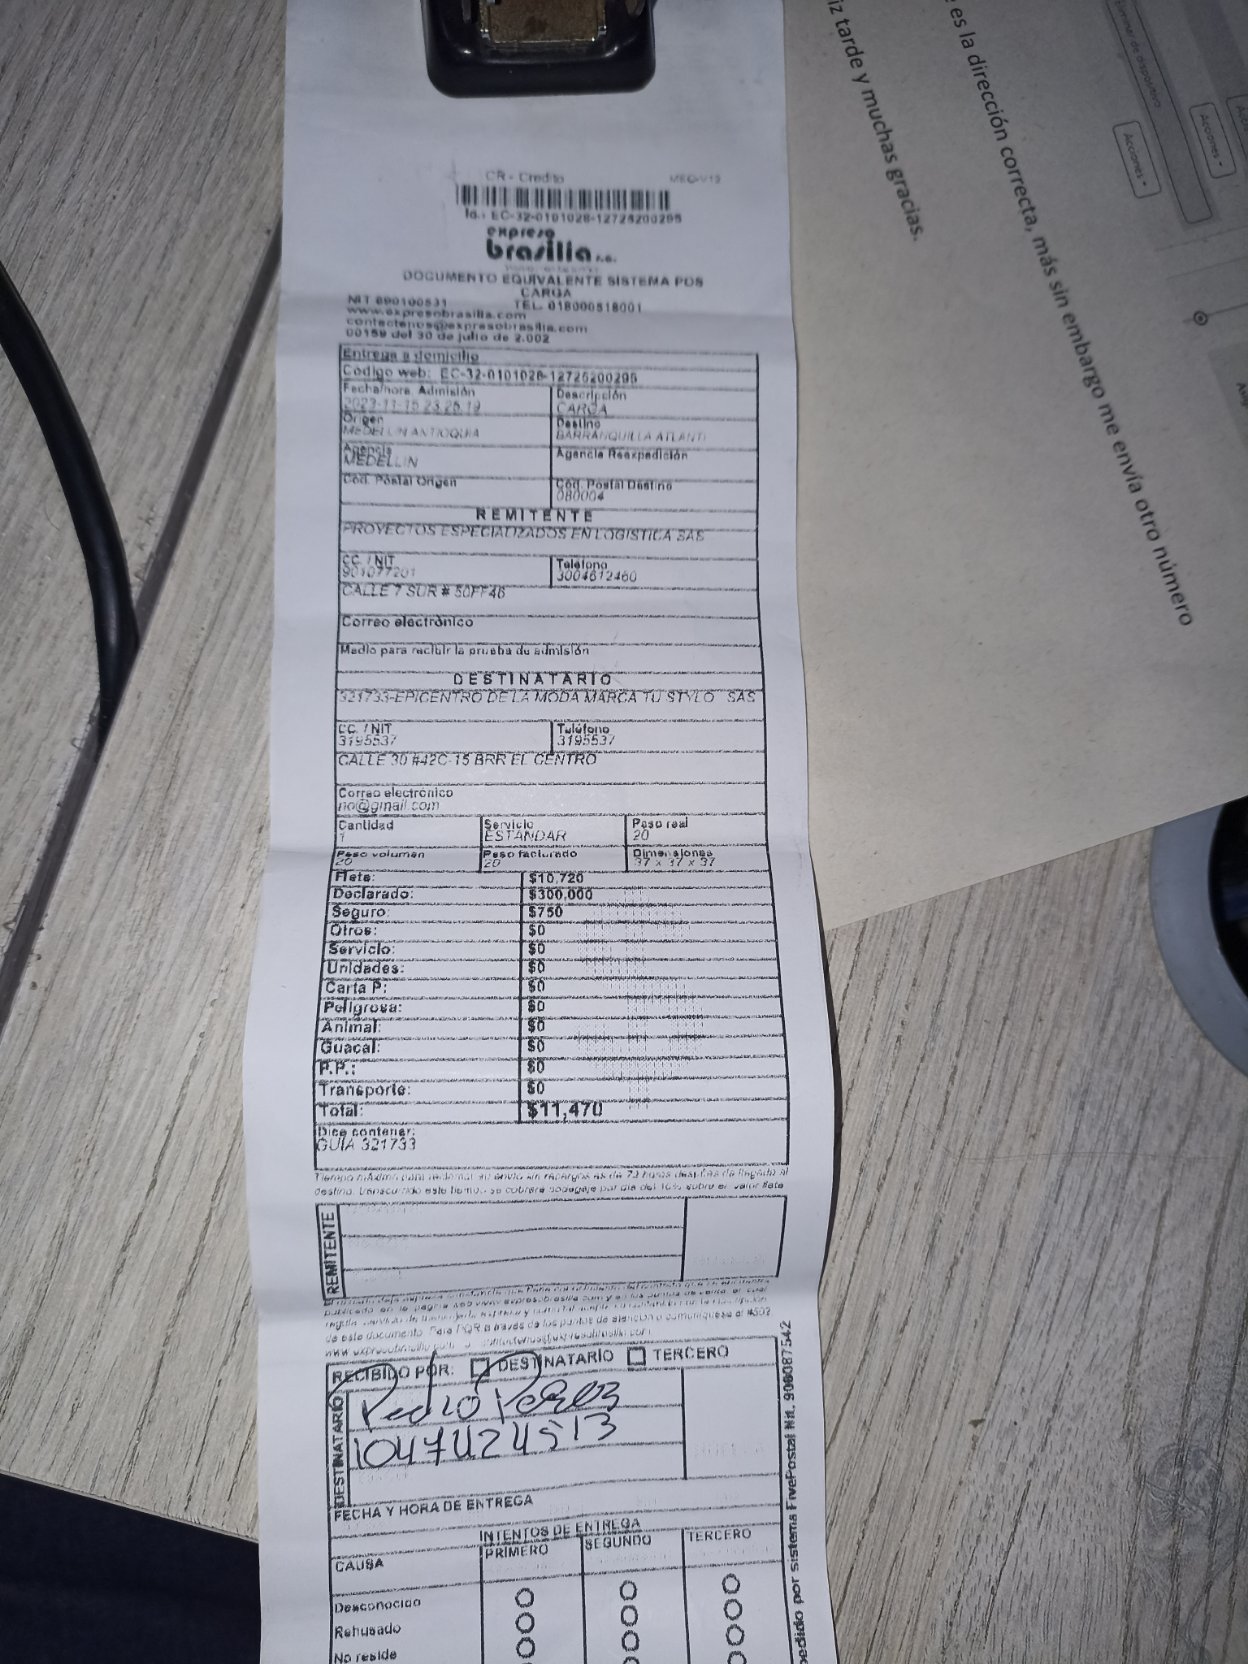 CR - Credito
Id.: EC-32-0101028-12725200295
expreso
brasilia s.a.
DOCUMENTO EQUIVALENTE SISTEMA POS
CARGA
NIT 890100531 TEL. 018000518001
www.expresobrasilia.com
contactenos@expresobrasilia.com
00159 del 30 de julio de 2.002
Entrega a domicilio
Codigo web: EC-32-0101028-12725200295
Fecha/hora. Admisión Descripción
2023-11-15 23:25:19 CARGA
Origen Destino
MEDELLIN ANTIOQUIA BARRANQUILLA ATLANTI
Agencia Agencia Reexpedición
MEDELLIN
Cód. Postal Origen Cód. Postal Destino
080004
REMITENTE
PROYECTOS ESPECIALIZADOS EN LOGISTICA SAS
CC. / NIT Teléfono
901077201 3004612460
CALLE 7 SUR # 50FF46
Correo electrónico
Medio para recibir la prueba de admisión
DESTINATARIO
321733-EPICENTRO DE LA MODA MARCA TU STYLO SAS
CC. / NIT Teléfono
3195537 3195537
CALLE 30 #42C-15 BRR EL CENTRO
Correo electrónico
no@gmail.com
Cantidad Servicio Peso real
1 ESTANDAR 20
Peso volumen Peso facturado Dimensiones
20 20 37 x 37 x 37
Flete: $10,720
Declarado: $300,000
Seguro: $750
Otros: $0
Servicio: $0
Unidades: $0
Carta P: $0
Peligrosa: $0
Animal: $0
Guacal: $0
P.P.: $0
Transporte: $0
Total: $11,470
Dice contener:
GUIA 321733
REMITENTE
RECIBIDO POR: DESTINATARIO TERCERO
DESTINATARIO
Pedro Perez
1047424513
FECHA Y HORA DE ENTREGA
INTENTOS DE ENTREGA
CAUSA PRIMERO SEGUNDO TERCERO
Desconocido
Rehusado
No reside
pedido por sistema FivePostal Nit. 900087542
es la dirección correcta, más sin embargo me envía otro número
iz tarde y muchas gracias.
Acciones
Acciones